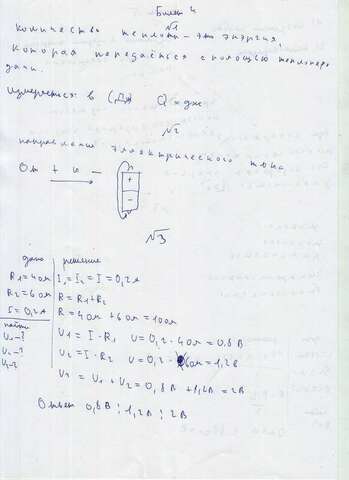 Билет 4
№1
Количество теплоты - это энергия,
которая передаётся с помощью теплопере
дачи.
Измеряется в (Дж) Q = дж
№2
направление электрического тока
От + к -
+
-
№3
дано решение
R1 = 4 ом I1 = I2 = I = 0,2 А
R2 = 6 ом R = R1 + R2
I = 0,2 А R = 4 ом + 6 ом = 10 ом
найти
U1 - ? U1 = I · R1 U = 0,2 · 4 ом = 0,8 В
U2 - ? U2 = I · R2 U = 0,2 · 6 ом = 1,2 В
U - ? U = U1 + U2 = 0,8 В + 1,2 В = 2 В
Ответ 0,8 В ; 1,2 В ; 2 В